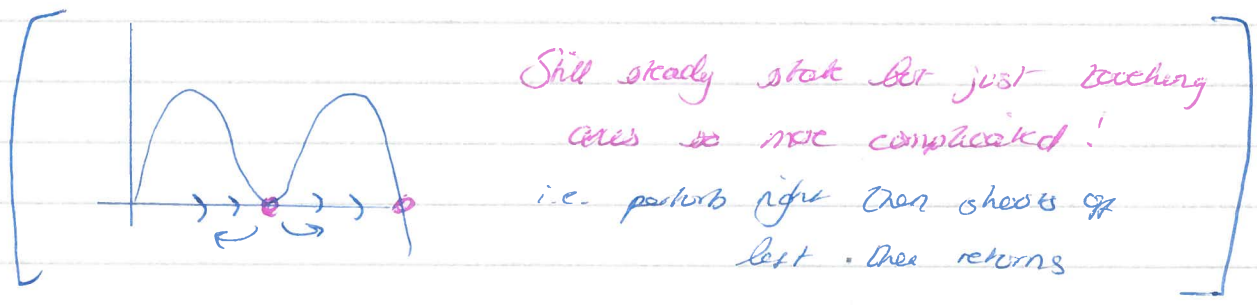 Still steady state but just touching
axes so more complicated!
i.e. perturb right then shoots off
left . then returns